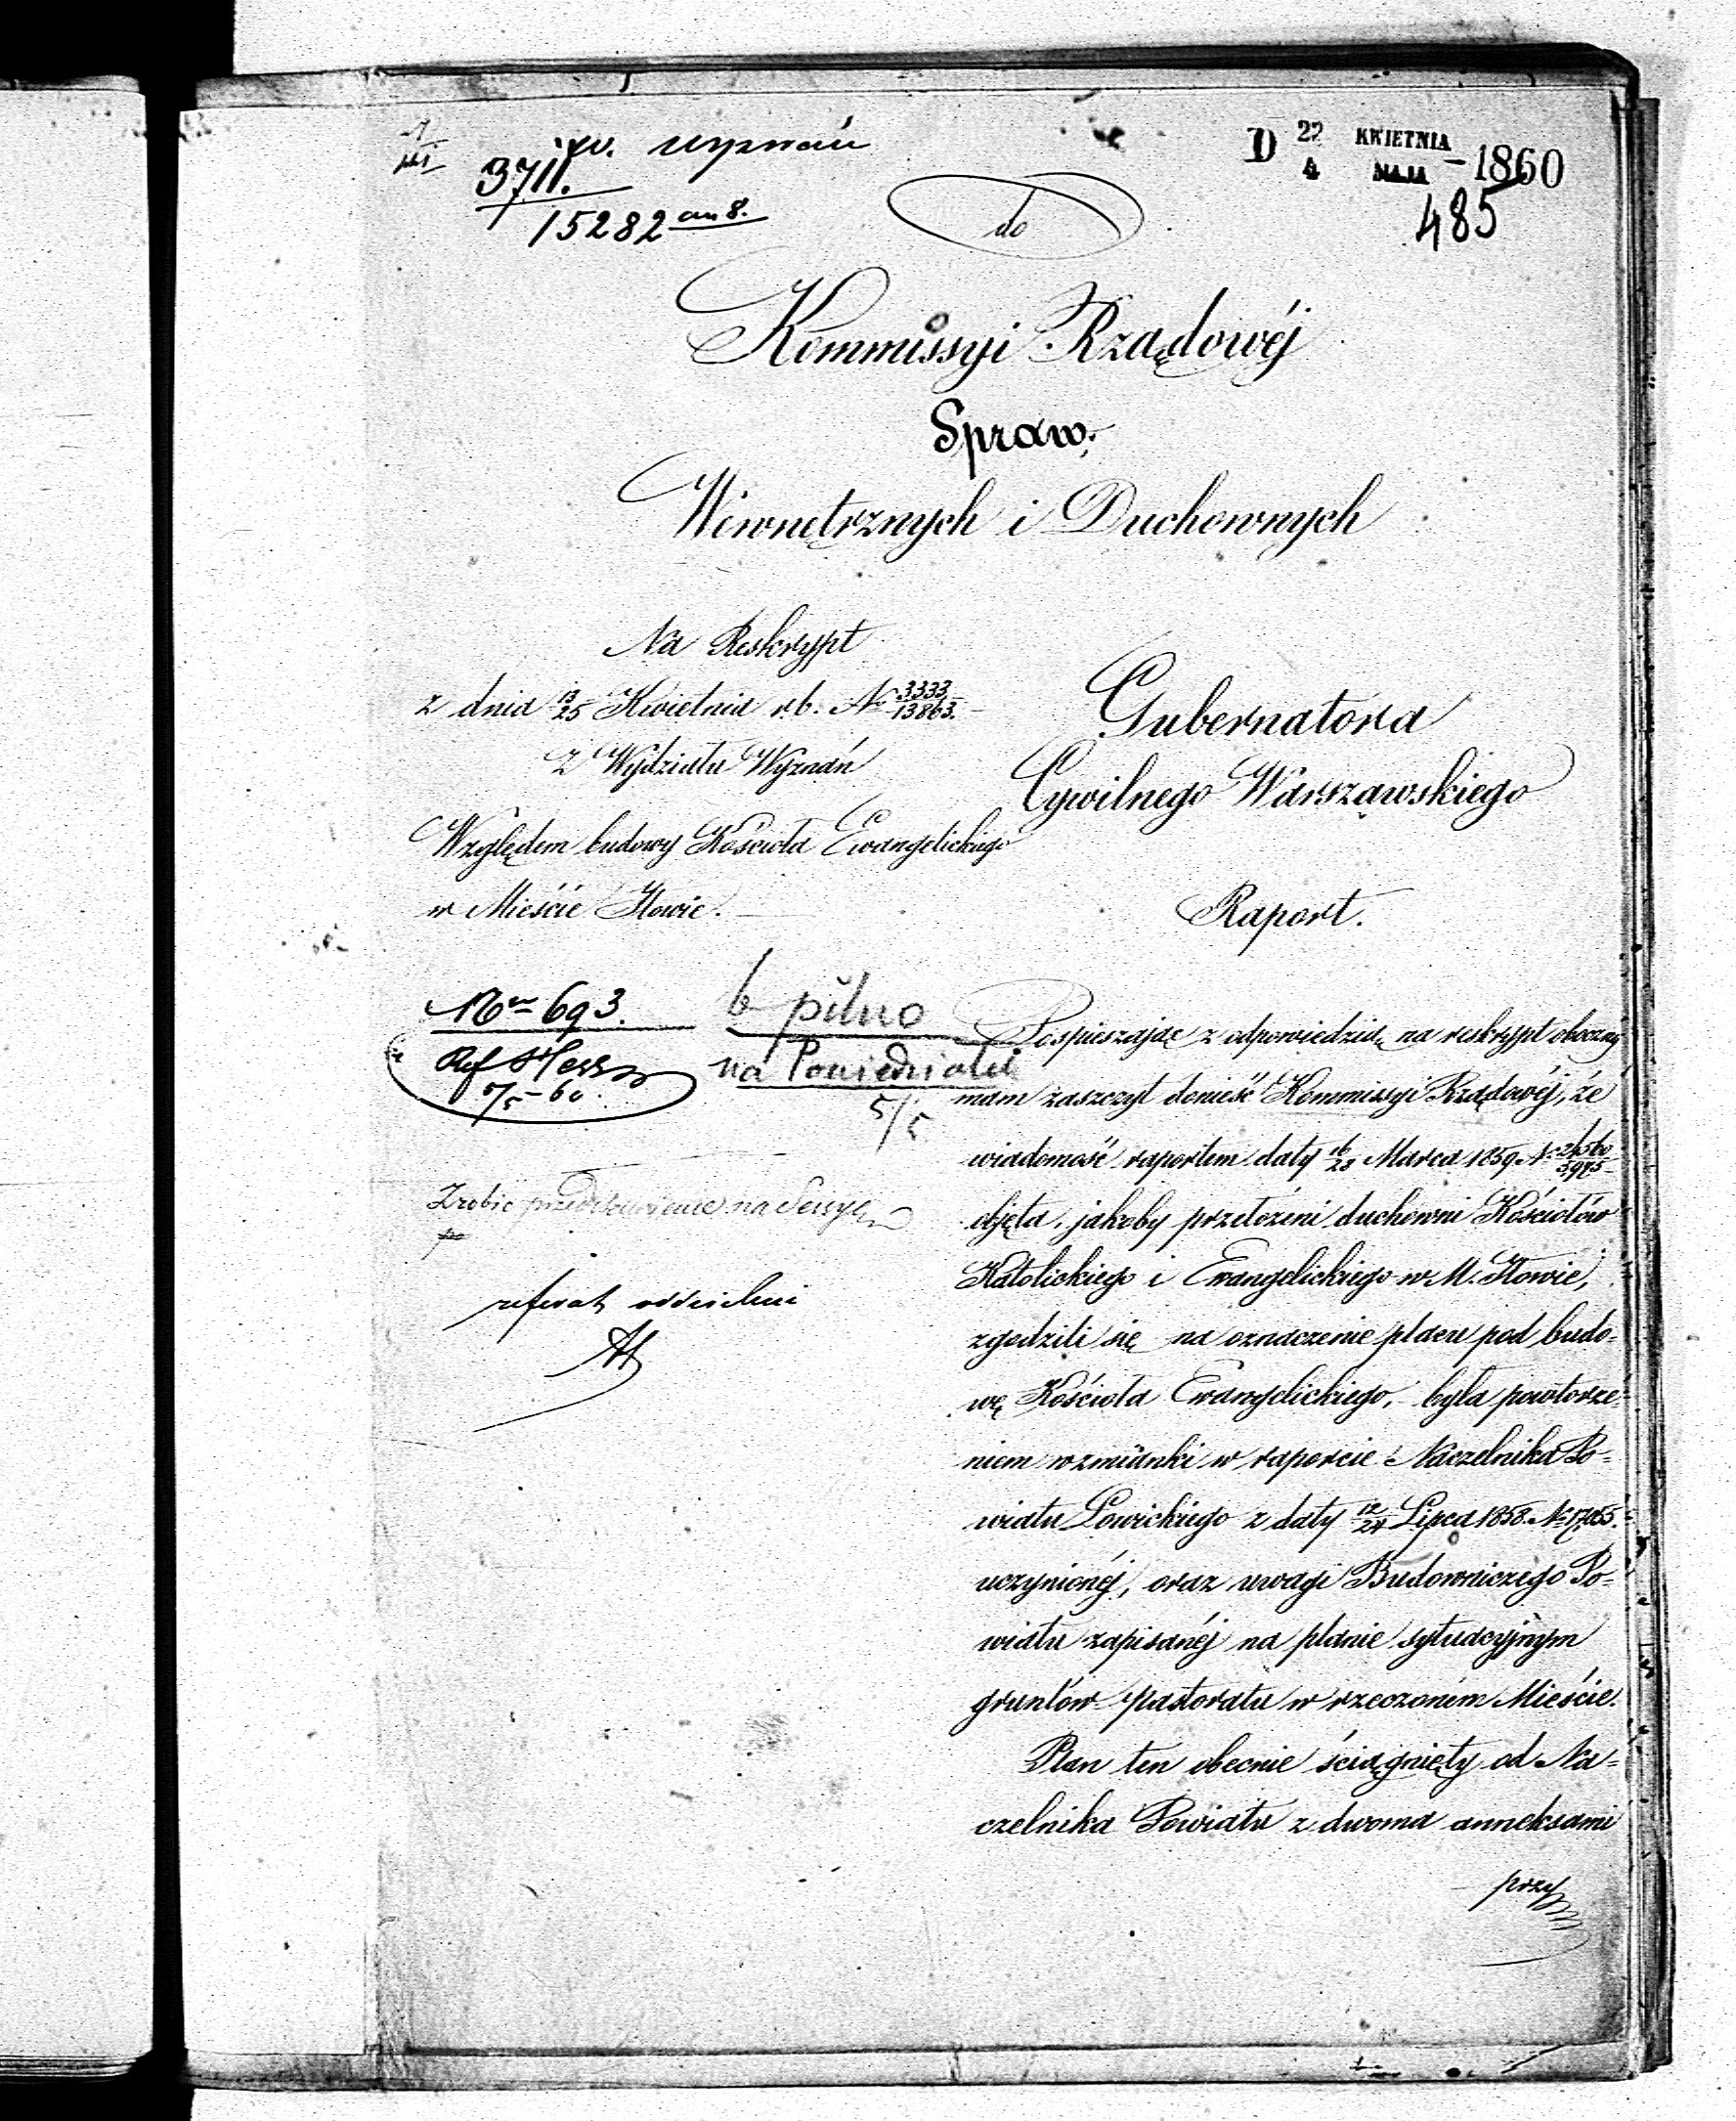 w. wyznań
D 22 KWIETNIA
4 MAJA - 1860
3711.
15282 an 8.
485
do
Kommissyi Rządowéj
Spraw
Wewnętrznych i Duchownych
Na Reskrypt
z dnia 13/25 Kwietnia r.b. No 3333/13863.
z Wydziału Wyznań
Względem budowy Kościoła Ewangelickiego
w Mieście Iłowie.
Gubernatora
Cywilnego Warszawskiego
Raport.
693.
Ref Hess
7/5 - 60.
b pilno
na Poniedziałek
5/5
Zrobić przedstawienie na Sessyę
referat oddzielnie
Pospieszając z odpowiedzią na reskrypt oboczny
mam zaszczyt donieść Kommissyi Rządowéj, że
wiadomość raportem daty 16/28 Marca 1859 No
objęta, jakoby przełożeni duchowni Kościołów
Katolickiego i Ewangelickiego w M. Iłowie,
zgodzili się na oznaczenie placu pod budo-
wę Kościoła Ewangelickiego, była powtorze-
niem wzmianki w raporcie Naczelnika Po-
wiatu Łowickiego z daty 12/24 Lipca 1858 No 17,055.
uczynionéj, oraz uwagi Budowniczego Po-
wiatu zapisanéj na planie sytuacyjnym
gruntów Pastoratu w rzeczoném Mieście.
Plan ten obecnie ściągnięty od Na-
czelnika Powiatu z dwoma anneksami
przy